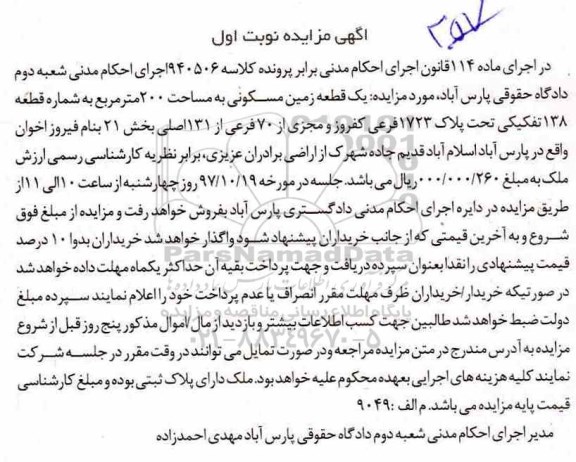 آگهی مزایده نوبت اول
در اجرای ماده ۱۱۴قانون اجرای احکام مدنی برابر پرونده کلاسه ۹۴۰۵۰۶اجرای احکام مدنی شعبه دوم
دادگاه حقوقی پارس آباد، مورد مزایده: یک قطعه زمین مسکونی به مساحت ۲۰۰مترمربع به شماره قطعه
۱۳۸تفکیکی تحت پلاک ۱۷۲۳فرعی کفروز و مجزی از ۷۰ فرعی از ۱۳۱اصلی بخش ۲۱ بنام فیروز اخوان
واقع در پارس آباد اسلام آباد قدیم جاده شهرک از اراضی برادران عزیزی، برابر نظریه کارشناسی رسمی ارزش
ملک به مبلغ ۰۰۰/۰۰۰/۲۶۰ریال می باشد. جلسه در مورخه ۹۷/۱۰/۱۹ روز چهارشنبه از ساعت ۱۰الی ۱۱از
طریق مزایده در دایره اجرای احکام مدنی دادگستری پارس آباد بفروش خواهد رفت و مزایده از مبلغ فوق
شروع و به آخرین قیمتی که از جانب خریداران پیشنهاد شود واگذار خواهد شد خریداران بدوا ۱۰ درصد
قیمت پیشنهادی را نقدا بعنوان سپرده دریافت و جهت پرداخت بقیه آن حداکثر یکماه مهلت داده خواهد شد
در صورتیکه خریدار/خریداران ظرف مهلت مقرر انصراف یا عدم پرداخت خود را اعلام نمایند سپرده مبلغ
دولت ضبط خواهد شد طالبین جهت کسب اطلاعات بیشتر و بازدید از مال اموال مذکور پنج روز قبل از شروع
مزایده به آدرس مندرج در متن مزایده مراجعه ودر صورت تمایل می توانند در وقت مقرر در جلسه شرکت
نمایند کلیه هزینه های اجرایی بعهده محکوم علیه خواهد بود. ملک دارای پلاک ثبتی بوده و مبلغ کارشناسی
قیمت پایه مزایده می باشد. م الف :۹۰۴۹
مدیر اجرای احکام مدنی شعبه دوم دادگاه حقوقی پارس آباد مهدی احمدزاده
ParsNamadData
پایگاه اطلاع رسانی مناقصه و مزایده
۰۲۱-۸۸۳۴۹۶۷۰-۵